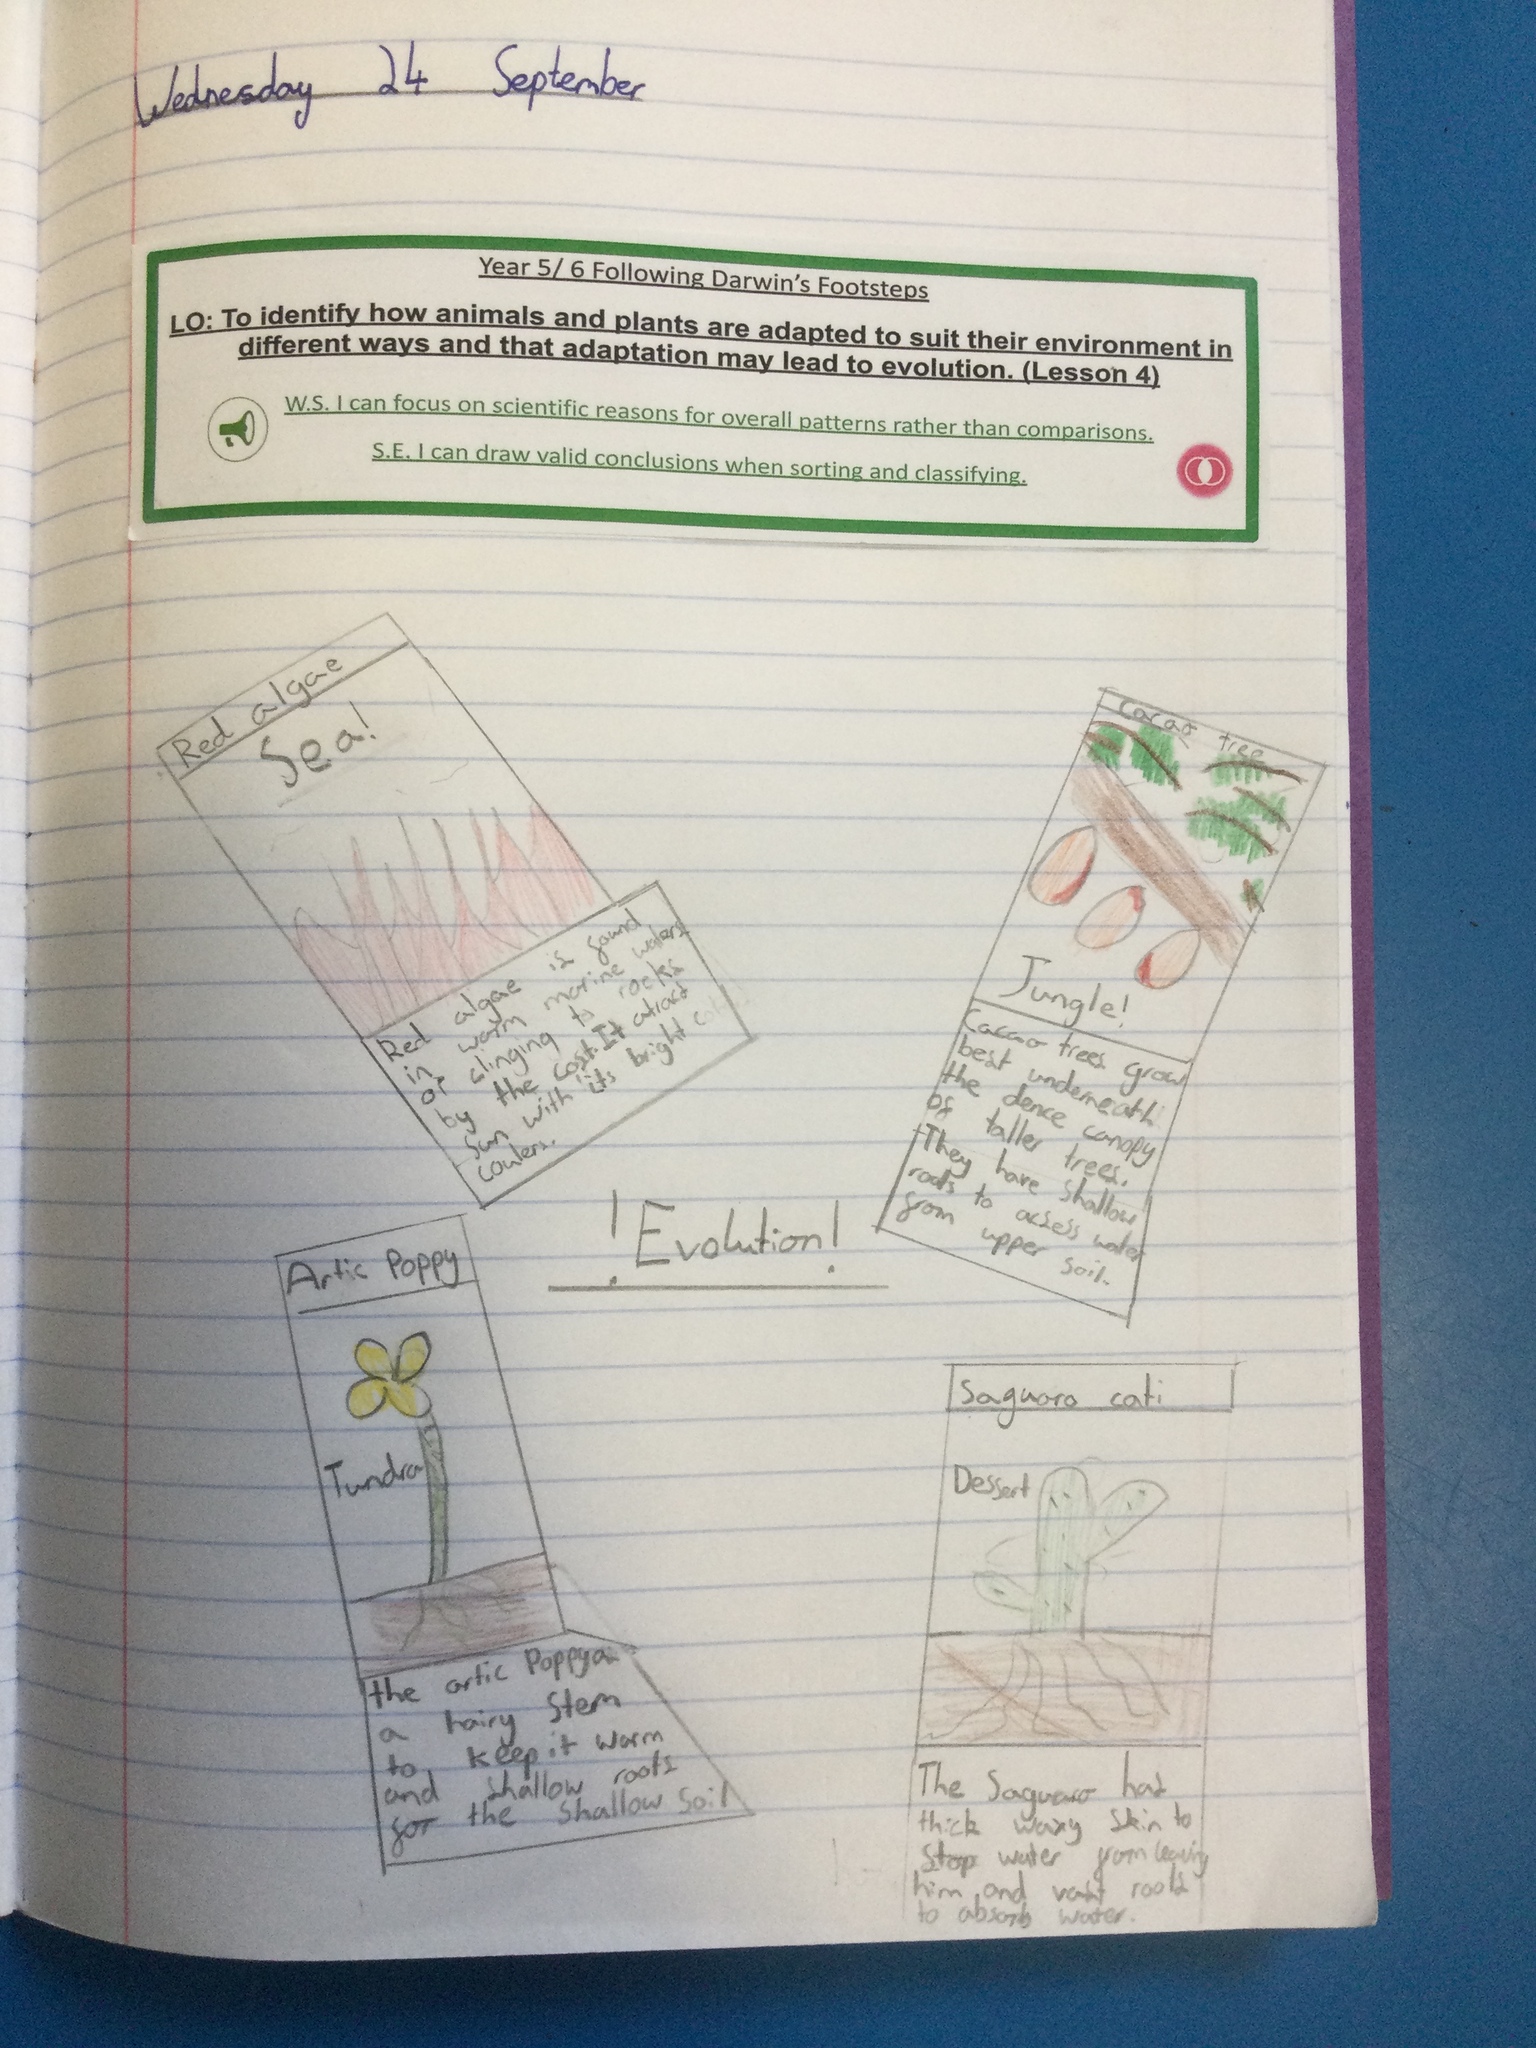 Wednesday 24 September
Year 5/ 6 Following Darwin's Footsteps
LO: To identify how animals and plants are adapted to suit their environment in
different ways and that adaptation may lead to evolution. (Lesson 4)
W.S. I can focus on scientific reasons for overall patterns rather than comparisons.
S.E. I can draw valid conclusions when sorting and classifying.
Red algae
Sea!
Red algae is found
in warm marine waters
or clinging to rocks
by the cost. It atract
sun with its bright
coulers.
Cacao tree
Jungle!
Cacao trees grow
best underneath
the dence canopy
of taller trees.
They have shallow
roots to acsess water
from upper soil.
! Evolution!
Artic Poppy
Tundra
the artic Poppy
a hairy stem
to keep it warm
and shallow roots
for the shallow soil
Saguaro cati
Dessert
The Saguaro has
thick waxy skin to
stop water from leaving
him and vast roots
to absorb water.